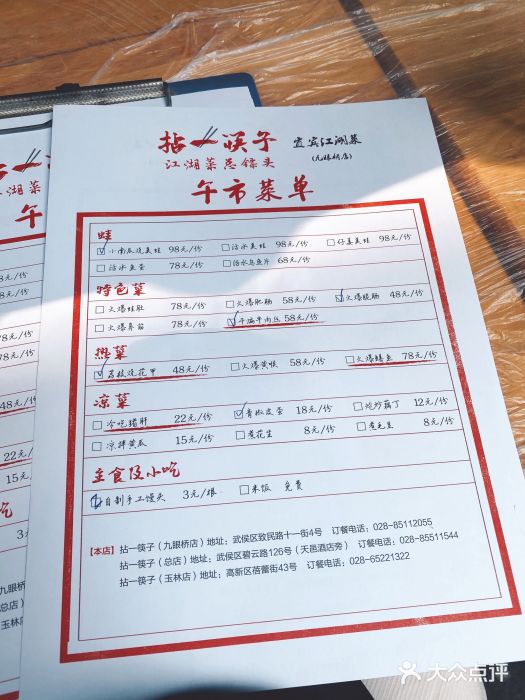 拈一筷子 宜宾江湖菜
江湖菜总馆头 (九眼桥店)
午市菜单
蛙
小南瓜烧美蛙 98元/份 沾水美蛙 98元/份 仔姜美蛙 98元/份
沾水鱼 78元/份 沾水乌鱼片 68元/份
特色菜
火爆蛙肚 78元/份 火爆肥肠 58元/份 火爆脆肠 48元/份
火爆鼻筋 78元/份 干煸牛肉丝 58元/份
热菜
荔枝烧花甲 48元/份 火爆黄喉 58元/份 火爆鳝鱼 78元/份
凉菜
冷吃猪肝 22元/份 青椒皮蛋 18元/份 炝炒藕丁 12元/份
凉拌黄瓜 15元/份 煮花生 8元/份 煮毛豆 8元/份
主食及小吃
自制手工馒头 3元/根 米饭 免费
【本店】拈一筷子（九眼桥店）地址：武侯区致民路十一街4号 订餐电话：028-85112055
拈一筷子（总店）地址：武侯区碧云路126号（天邑酒店旁） 订餐电话：028-85511544
拈一筷子（玉林店）地址：高新区蓓蕾街43号 订餐电话：028-65221322
江湖菜
午
98元/份
78元/份
78元/份
78元/份
48元/份
22元/份
15元/份
吃
3元
（九眼桥店）
（总店）
（玉林店）
大众点评